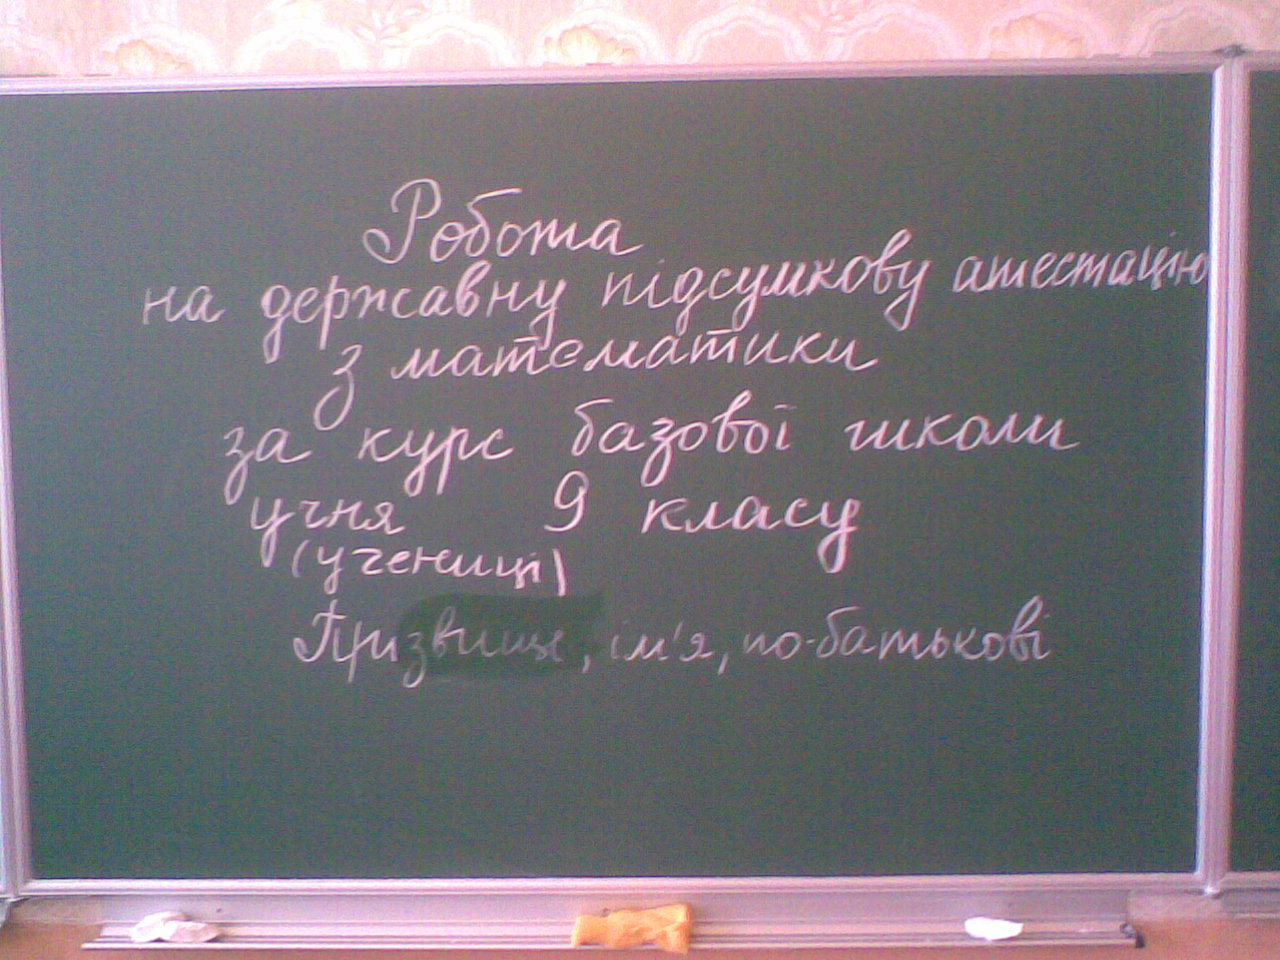 Робота
на державну підсумкову атестацію
з математики
за курс базової школи
учня 9 класу
(учениці)
Призвище, ім'я, по-батькові